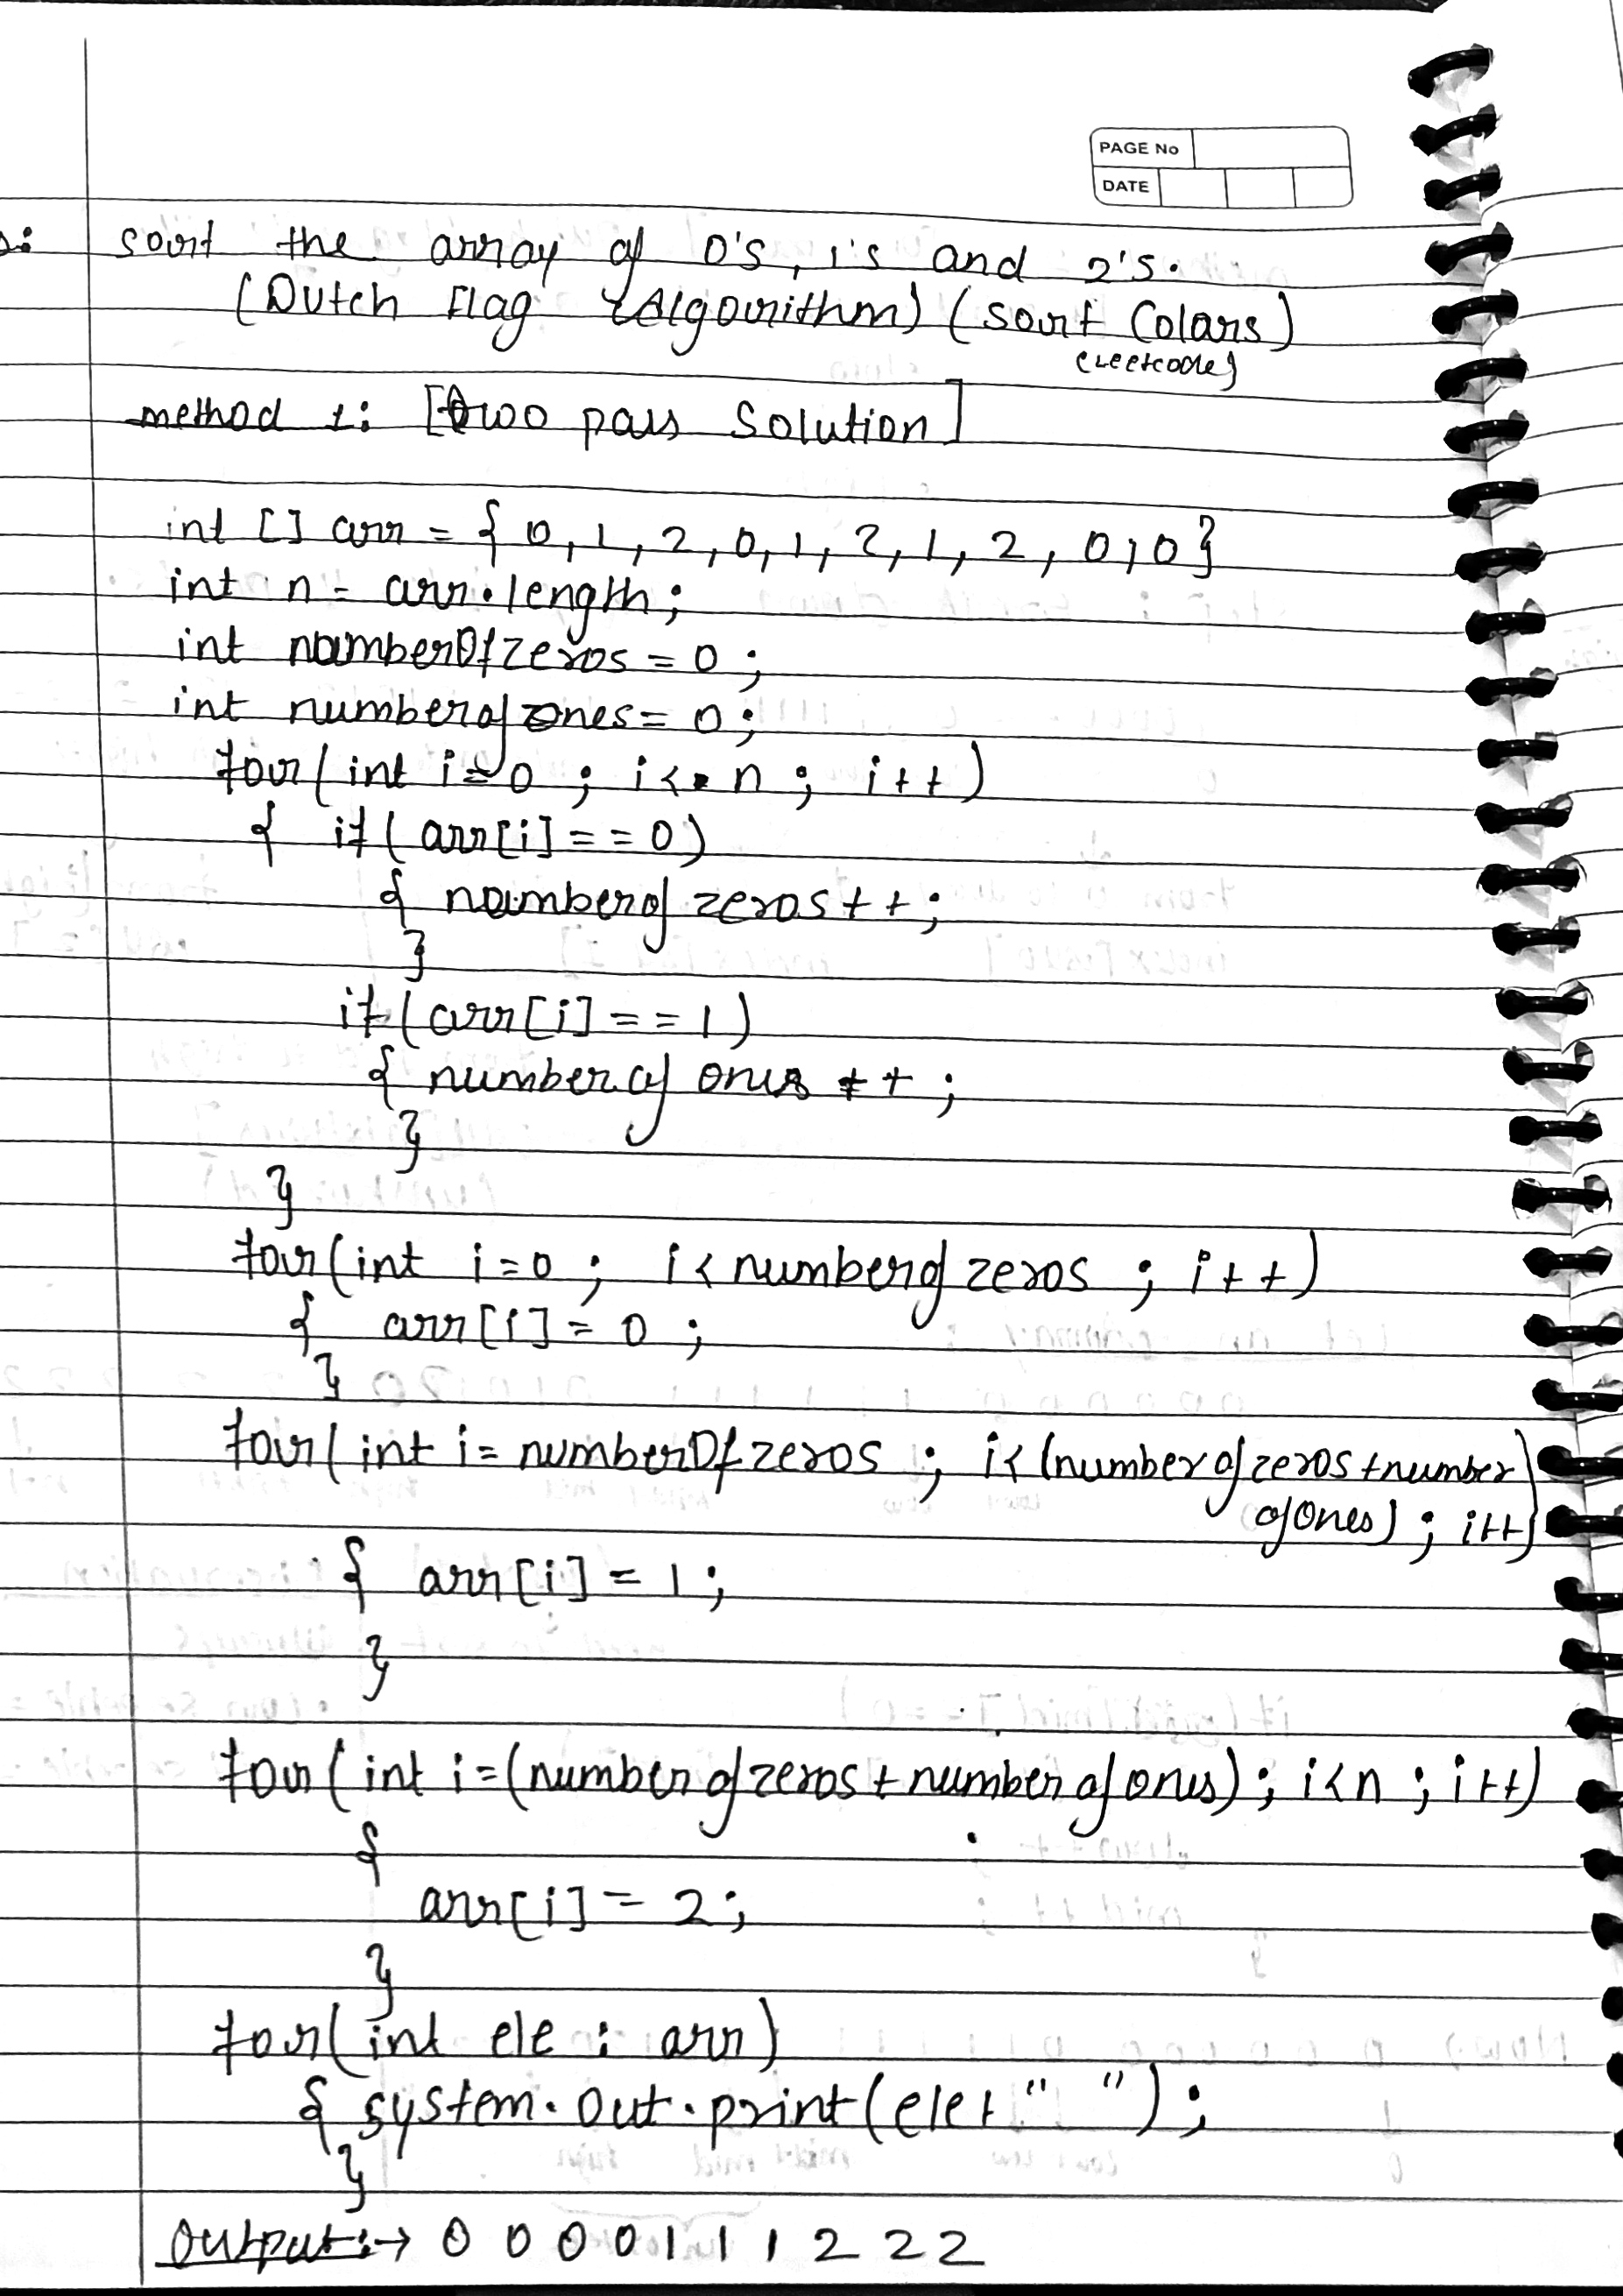 PAGE No
DATE
sort the array of 0's, 1's and 2's.
(Dutch Flag Algorithm) (Sort Colors)
(Leetcode)
method 1: [two pass Solution]
int [] arr = { 0, 1, 2, 0, 1, 2, 1, 2, 0, 0}
int n = arr.length;
int numberOfzeros = 0;
int numberofones = 0;
for(int i=0 ; i< n ; i++)
{ if( arr[i]==0)
{ numberof zeros++;
}
if(arr[i]==1)
{ numberof ones ++;
}
}
for(int i=0 ; i< numberof zeros ; i++)
{ arr[i]=0 ;
}
for(int i= numberOfzeros ; i< (numberofzeros+number
ofOnes) ; i++)
{ arr[i]=1;
}
for(int i=(numberofzeros+numberofones); i<n ; i++)
{
arr[i]=2;
}
for(int ele : arr)
{ system.out.print(ele+" ");
}
Output:→ 0 0 0 0 1 1 1 2 2 2